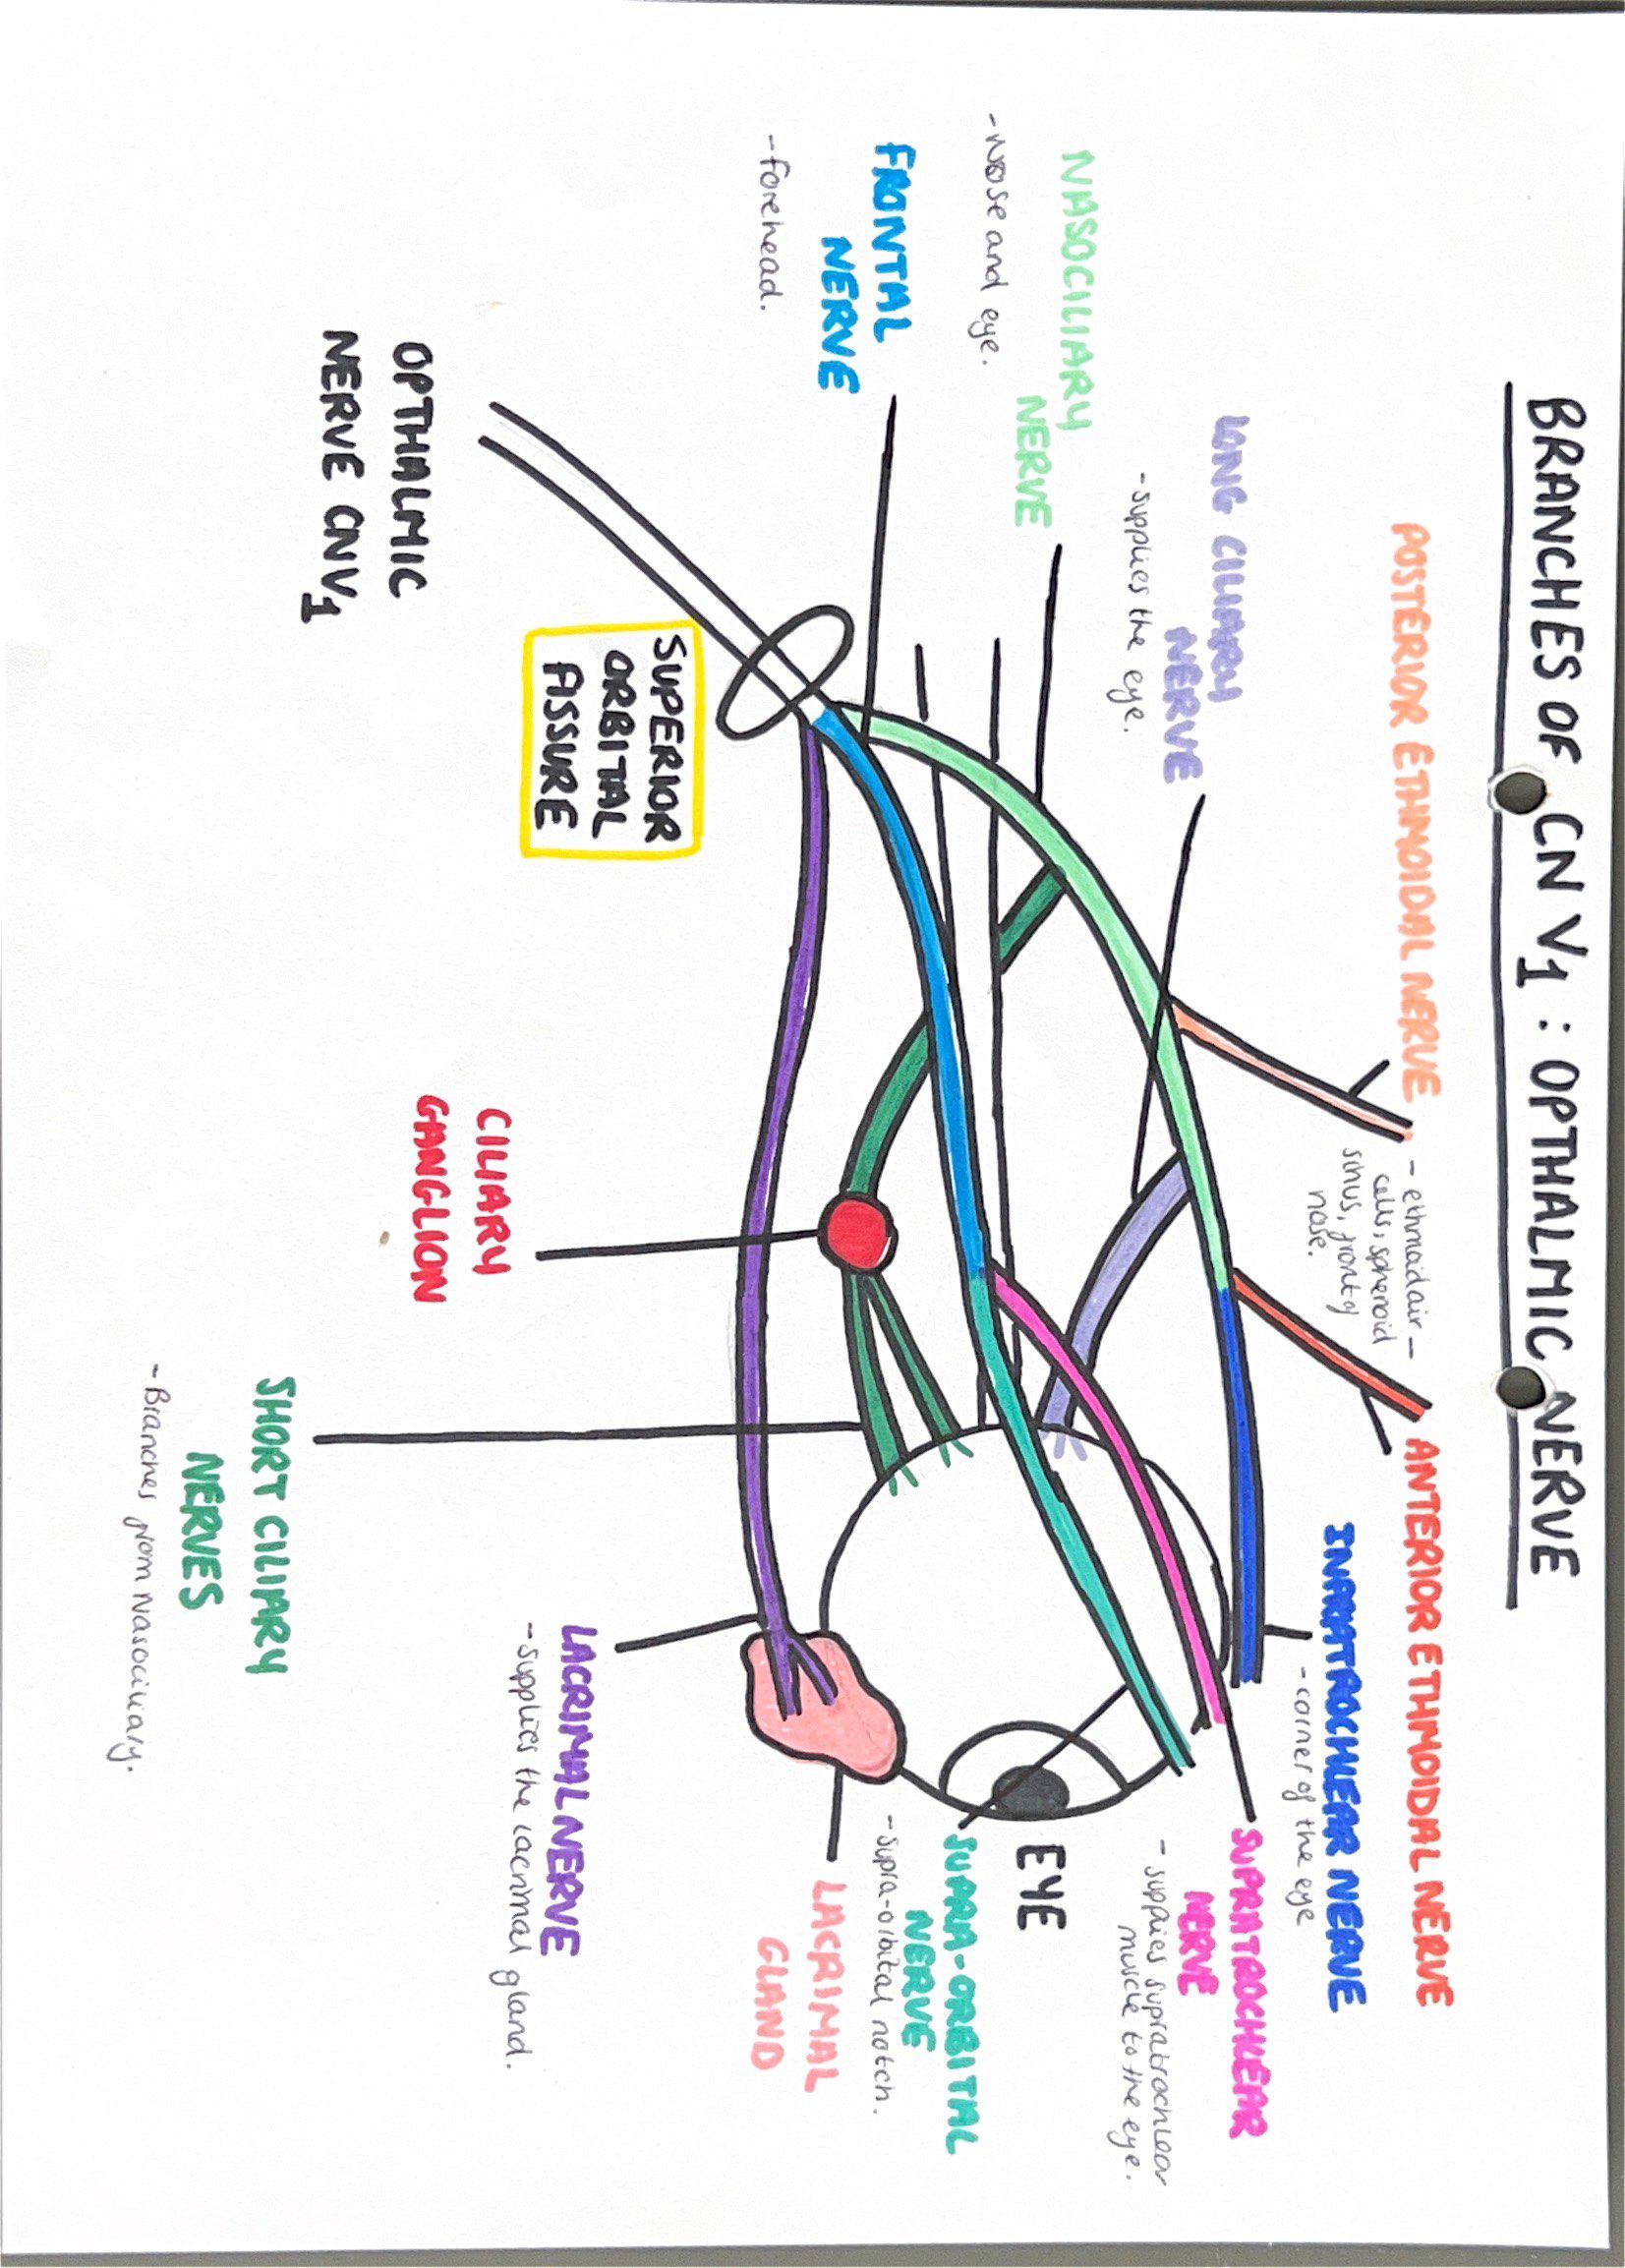 BRANCHES OF CN V1 : OPTHALMIC NERVE
POSTERIOR ETHMOIDAL NERVE
- ethmoid air -
cells, sphenoid
sinus, front of
nose.
ANTERIOR ETHMOIDAL NERVE
INFRATROCHLEAR NERVE
- corner of the eye
LONG CILIARY
NERVE
- supplies the eye.
SUPRATROCHLEAR
NERVE
- supplies supratrochlear
muscle to the eye.
NASOCILIARY
NERVE
- Nose and eye.
EYE
SUPRA-ORBITAL
NERVE
- supra-orbital notch.
FRONTAL
NERVE
- forehead.
LACRIMAL
GLAND
SUPERIOR
ORBITAL
FISSURE
LACRIMAL NERVE
- supplies the lacrimal gland.
CILIARY
GANGLION
OPTHALMIC
NERVE CNV1
SHORT CILIARY
NERVES
- Branches from Nasociliary.